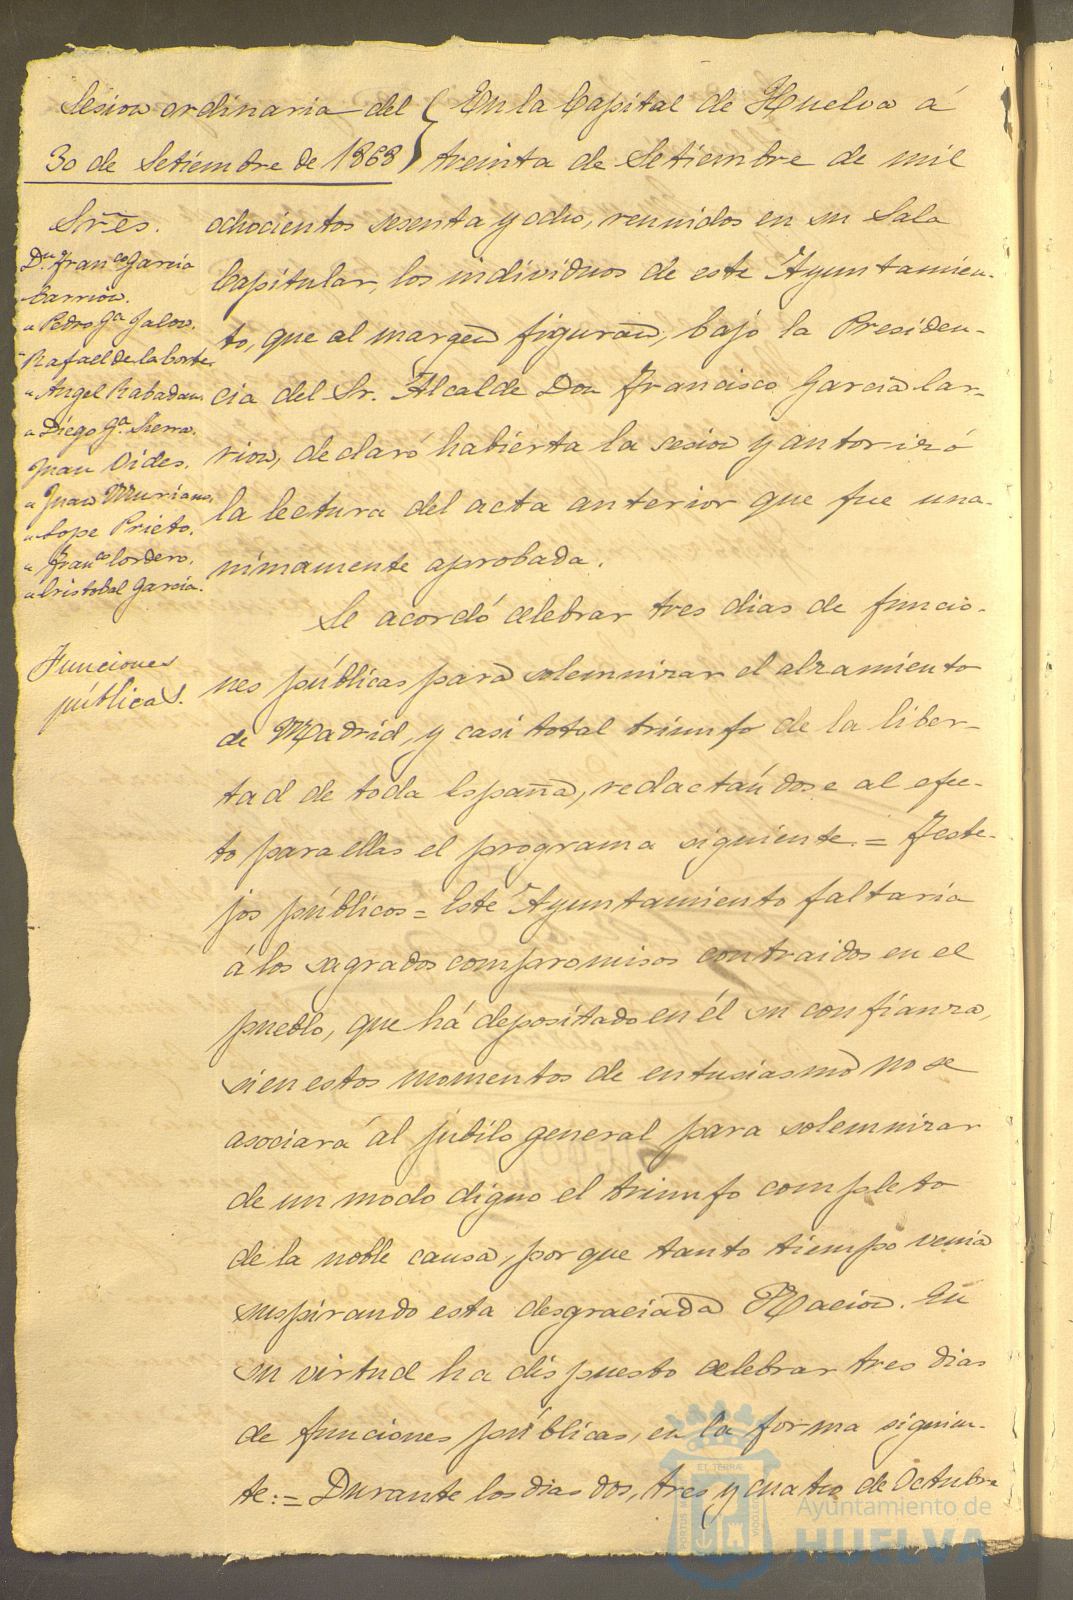 Sesion ordinaria del
30 de Setiembre de 1868
Sres.
Dn. Franco. Garcia
Carrion.
" Pedro Ga. Jalon.
" Rafael de la Corte.
" Angel Rabadan.
" Diego Ga. Sierra.
Juan Vides.
" Juan Muriano.
" Lope Prieto.
" Franco. Cordero.
" Cristobal Garcia.
Funciones
públicas.
En la Capital de Huelva á
treinta de Setiembre de mil
ochocientos sesenta y ocho, reunidos en su Sala
Capitular, los individuos de este Ayuntamien-
to, que al margen figuran, bajo la Presiden-
cia del Sr. Alcalde Don Francisco Garcia Car-
rion, declaró habierta la sesion y autorizó
la lectura del acta anterior que fue una-
nimamente aprobada.
Se acordó celebrar tres dias de funcio-
nes públicas para solemnizar el alzamiento
de Madrid, y casi total triunfo de la liber-
tad de toda España, redactándose al efec-
to para ellas el programa siguiente. = Feste-
jos públicos = Este Ayuntamiento faltaria
á los sagrados compromisos contraidos en el
pueblo, que há depositado en él su confianza,
si en estos momentos de entusiasmo no se
asociará al júbilo general para solemnizar
de un modo digno el triunfo completo
de la noble causa, por que tanto tiempo venia
suspirando esta desgraciada Nacion. En
su virtud ha dispuesto celebrar tres dias
de funciones públicas, en la forma siguien-
te: = Durante los dias dos, tres y cuatro de Octubre
Ayuntamiento de
HUELVA